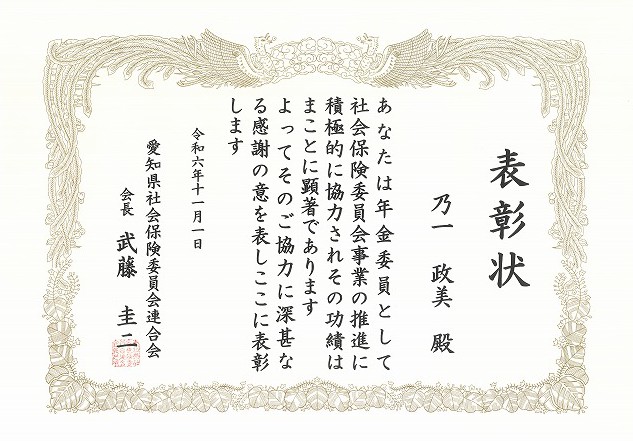 表彰状
乃一 政美 殿
あなたは年金委員として
社会保険委員会事業の推進に
積極的に協力されその功績は
まことに顕著であります
よってそのご協力に深甚な
る感謝の意を表しここに表彰
します
令和六年十一月一日
愛知県社会保険委員会連合会
会長 武藤 圭二